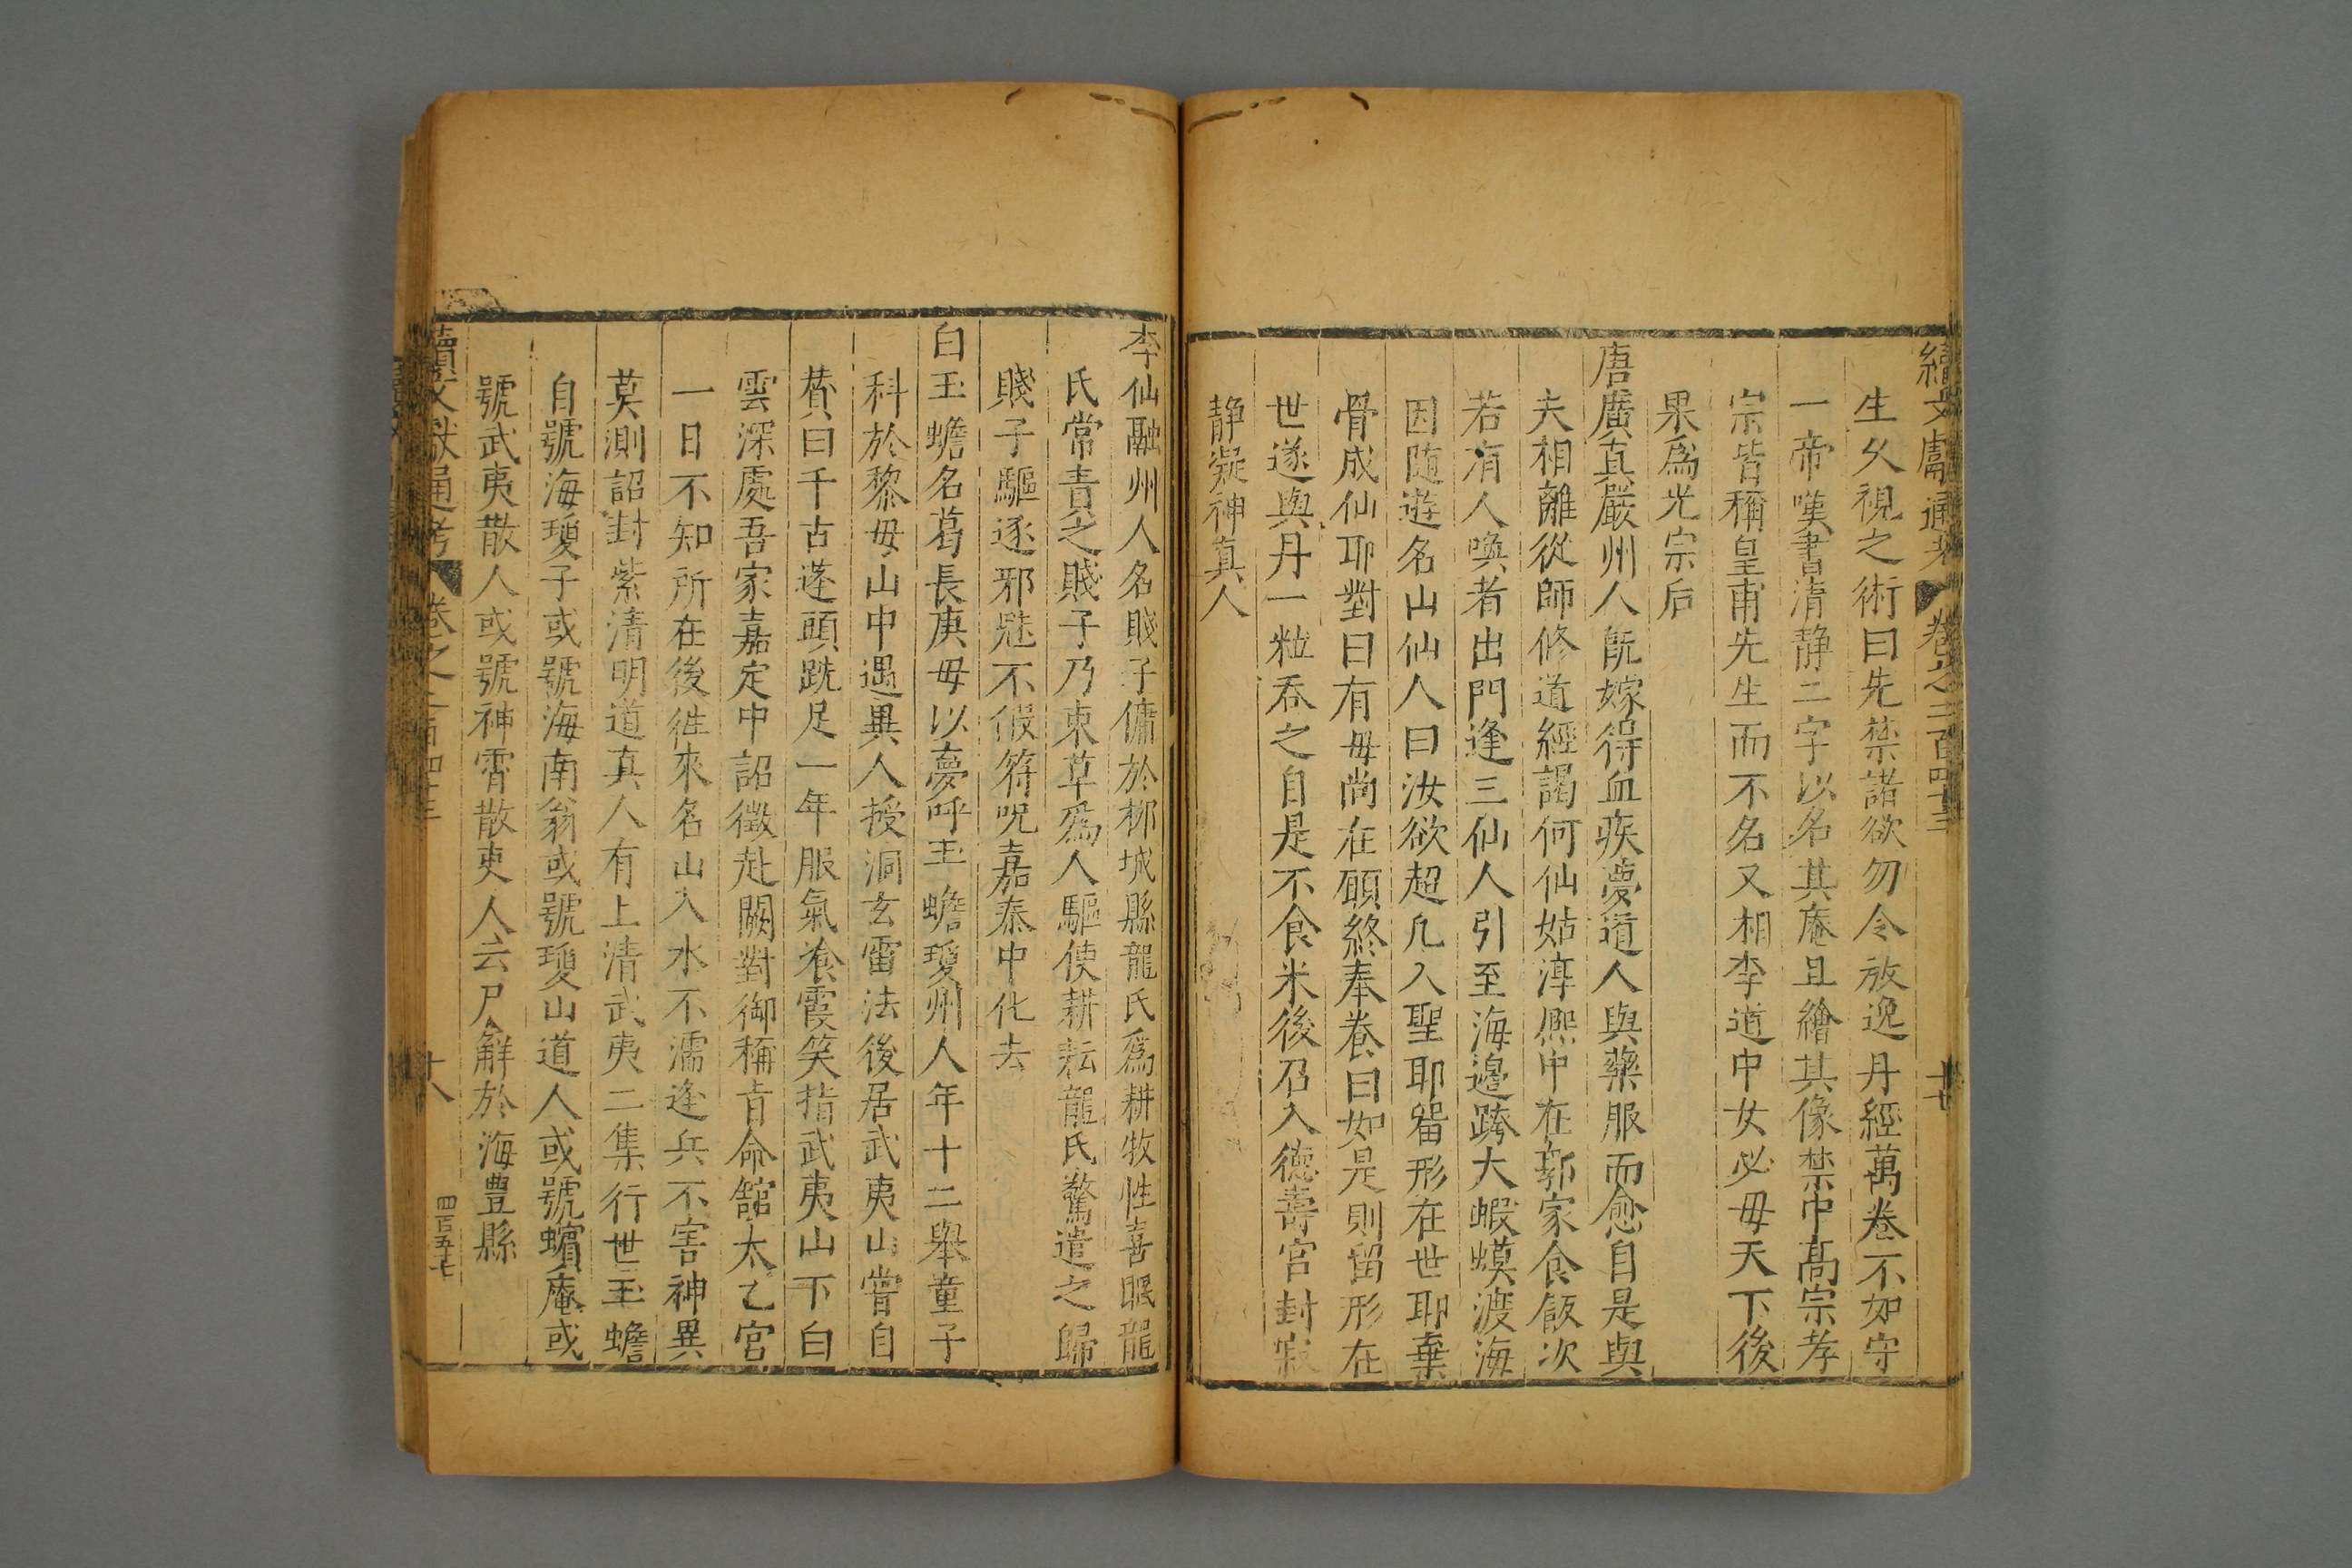 續文獻通考 卷之二百四十三
生久視之術曰先禁諸欲勿令放逸丹經萬卷不如守
一帝嘆書清靜二字以名其庵且繪其像禁中高宗孝
宗皆稱皇甫先生而不名又相李道中女必母天下後
果爲光宗后
唐廣真嚴州人旣嫁得血疾夢道人與藥服而愈自是與
夫相離從師修道經謁何仙姑淳熙中在郭家食飯次
若有人喚者出門逢三仙人引至海邊跨大蝦蟆渡海
因随遊名山仙人曰汝欲超凡入聖耶留形在世耶棄
骨成仙耶對曰有母尚在願終奉養曰如是則留形在
世遂與丹一粒吞之自是不食米後召入德壽宮封寂
靜凝神真人
李仙融州人名賤子傭於柳城縣龍氏爲耕牧性喜眠龍
氏常責之賤子乃束草爲人驅使耕耘龍氏驚遣之歸
賤子驅逐邪魅不假符呪嘉泰中化去
白玉蟾名葛長庚母以夢呼玉蟾瓊州人年十二舉童子
科於黎母山中遇異人授洞玄雷法後居武夷山嘗自
賛曰千古蓬頭跣足一年服氣飡霞笑指武夷山下白
雲深處吾家嘉定中詔徵赴闕對御稱旨命舘太乙宮
一日不知所在後徃來名山入水不濡逢兵不害神異
莫測詔封紫清明道真人有上清武夷二集行世玉蟾
自號海瓊子或號海南翁或號瓊山道人或號蠙庵或
號武夷散人或號神霄散吏人云尸解於海豊縣
續文獻通考 卷之二百四十三 十八 四百五十七